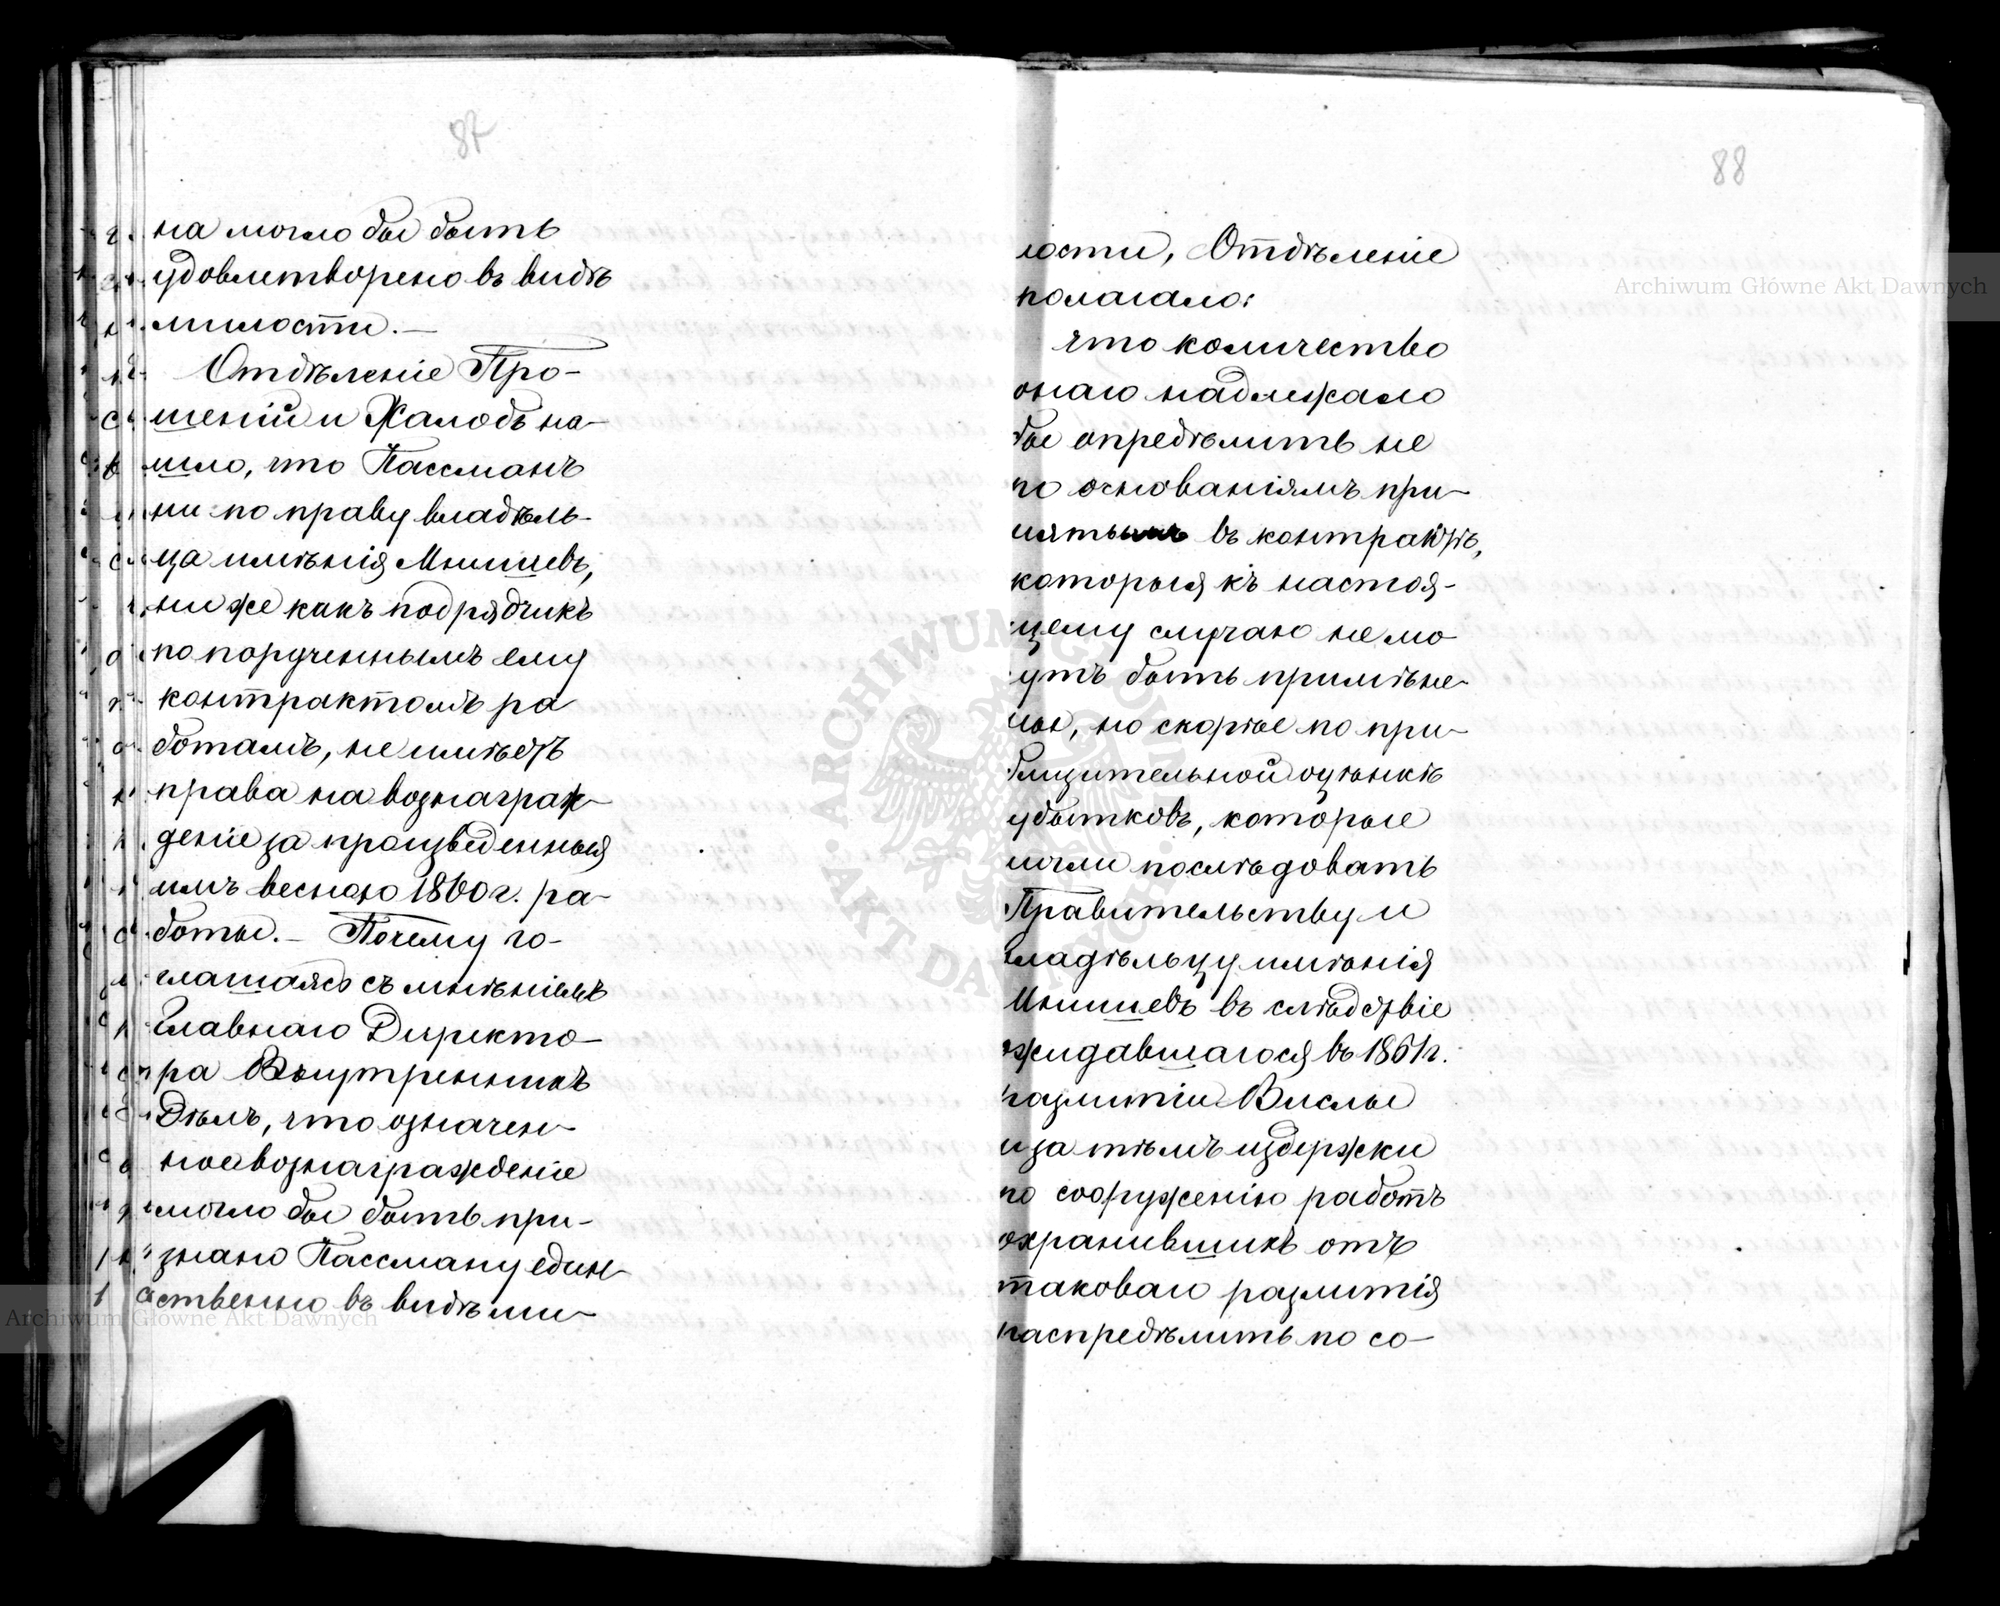 87
на могло бы быть
удовлетворено въ видѣ
милости. —
Отдѣленіе Про-
шеній и Жалобъ на-
шло, что Пассманъ
ни по праву владѣль-
ца имѣнія Мнишевъ,
ни же какъ подрядчикъ
по порученнымъ ему
контрактомъ ра
ботамъ, не имѣетъ
права на вознаграж-
деніе за произведенныя
имъ весною 1860 г. ра-
боты. — Почему со-
глашаясь съ мнѣніемъ
Главнаго Директо-
ра Внутреннихъ
Дѣлъ, что означен-
ное вознагражденіе
могло бы быть при-
знано Пассману един-
ственно въ видѣ ми-
88
лости, Отдѣленіе
полагало:
что количество
онаго надлежало
бы опредѣлить не
по основаніямъ при-
нятымъ въ контрактѣ,
которыя къ настоя-
щему случаю не мо
гутъ быть примѣне-
ны, но скорѣе по при-
близительной оцѣнкѣ
убытковъ, которые
могли послѣдовать
Правительству и
владѣльцу имѣнія
Мнишевъ въ слѣдствіе
ожидавшагося въ 1861 г.
разлитіи Вислы
и за тѣмъ издержки
по сооруженію работъ
охранившихъ отъ
таковаго разлитія
распредѣлить по со-
Archiwum Główne Akt Dawnych
Archiwum Główne Akt Dawnych
ARCHIWUM GŁÓWNE AKT DAWNYCH